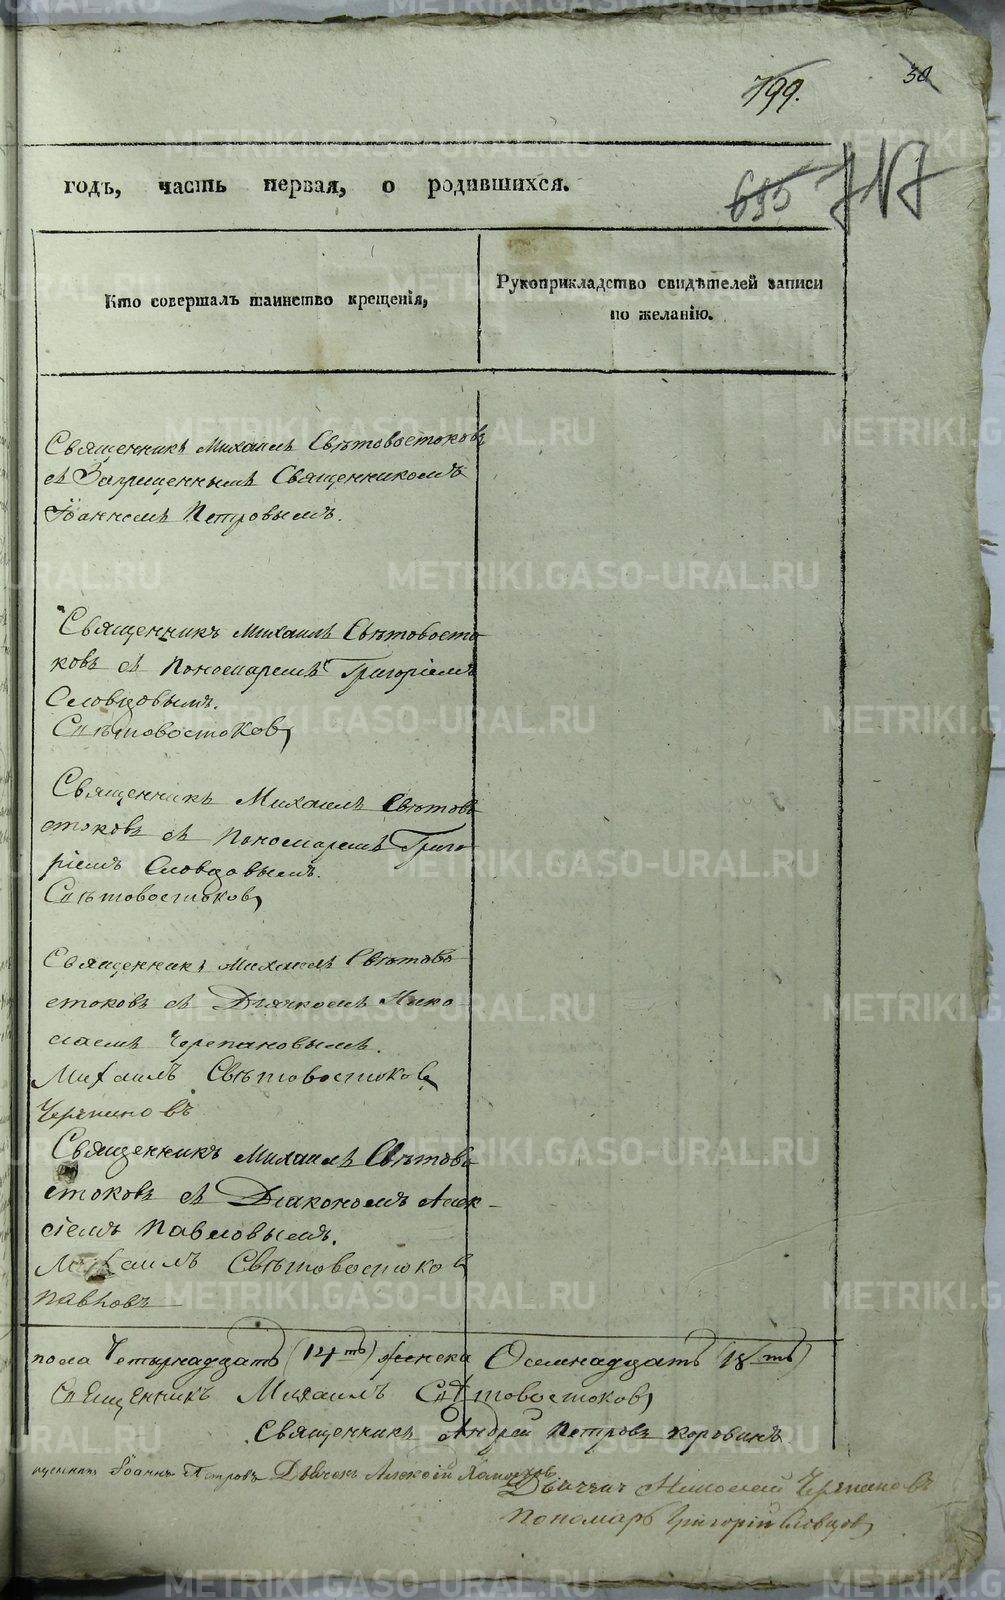 799.
30
годъ, часть первая, о родившихся.
695 717
Кто совершалъ таинство крещенія,
Рукоприкладство свидѣтелей записи
по желанію.
Священникъ Михаилъ Свѣтовостоковъ
съ Запрещеннымъ Священникомъ
Іоанномъ Петровымъ.
Священникъ Михаилъ Свѣтовосто
ковъ съ Пономаремъ Григоріемъ
Словцовымъ.
Свѣтовостоковъ
Священникъ Михаилъ Свѣтово
стоковъ съ Пономаремъ Григо
ріемъ Словцовымъ.
Свѣтовостоковъ
Священникъ Михаилъ Свѣтово
стоковъ съ Дьячкомъ Нико
лаемъ Черепановымъ.
Михаилъ Свѣтовостоковъ
Черепановъ
Священникъ Михаилъ Свѣтово
стоковъ съ Діакономъ Алек-
сіемъ Павловымъ.
Михаилъ Свѣтовостоковъ
Павловъ
пола Четырнадцать (14ть) женска Осемнадцать (18ть)
Священникъ Михаилъ Свѣтовостоковъ
Священникъ Андрей Петровъ Коровинъ
Іоаннъ Петровъ Дьячокъ Алексій
Дьячекъ Николай Черепановъ
Пономарь Григорій Словцовъ
METRIKI.GASO-URAL.RU